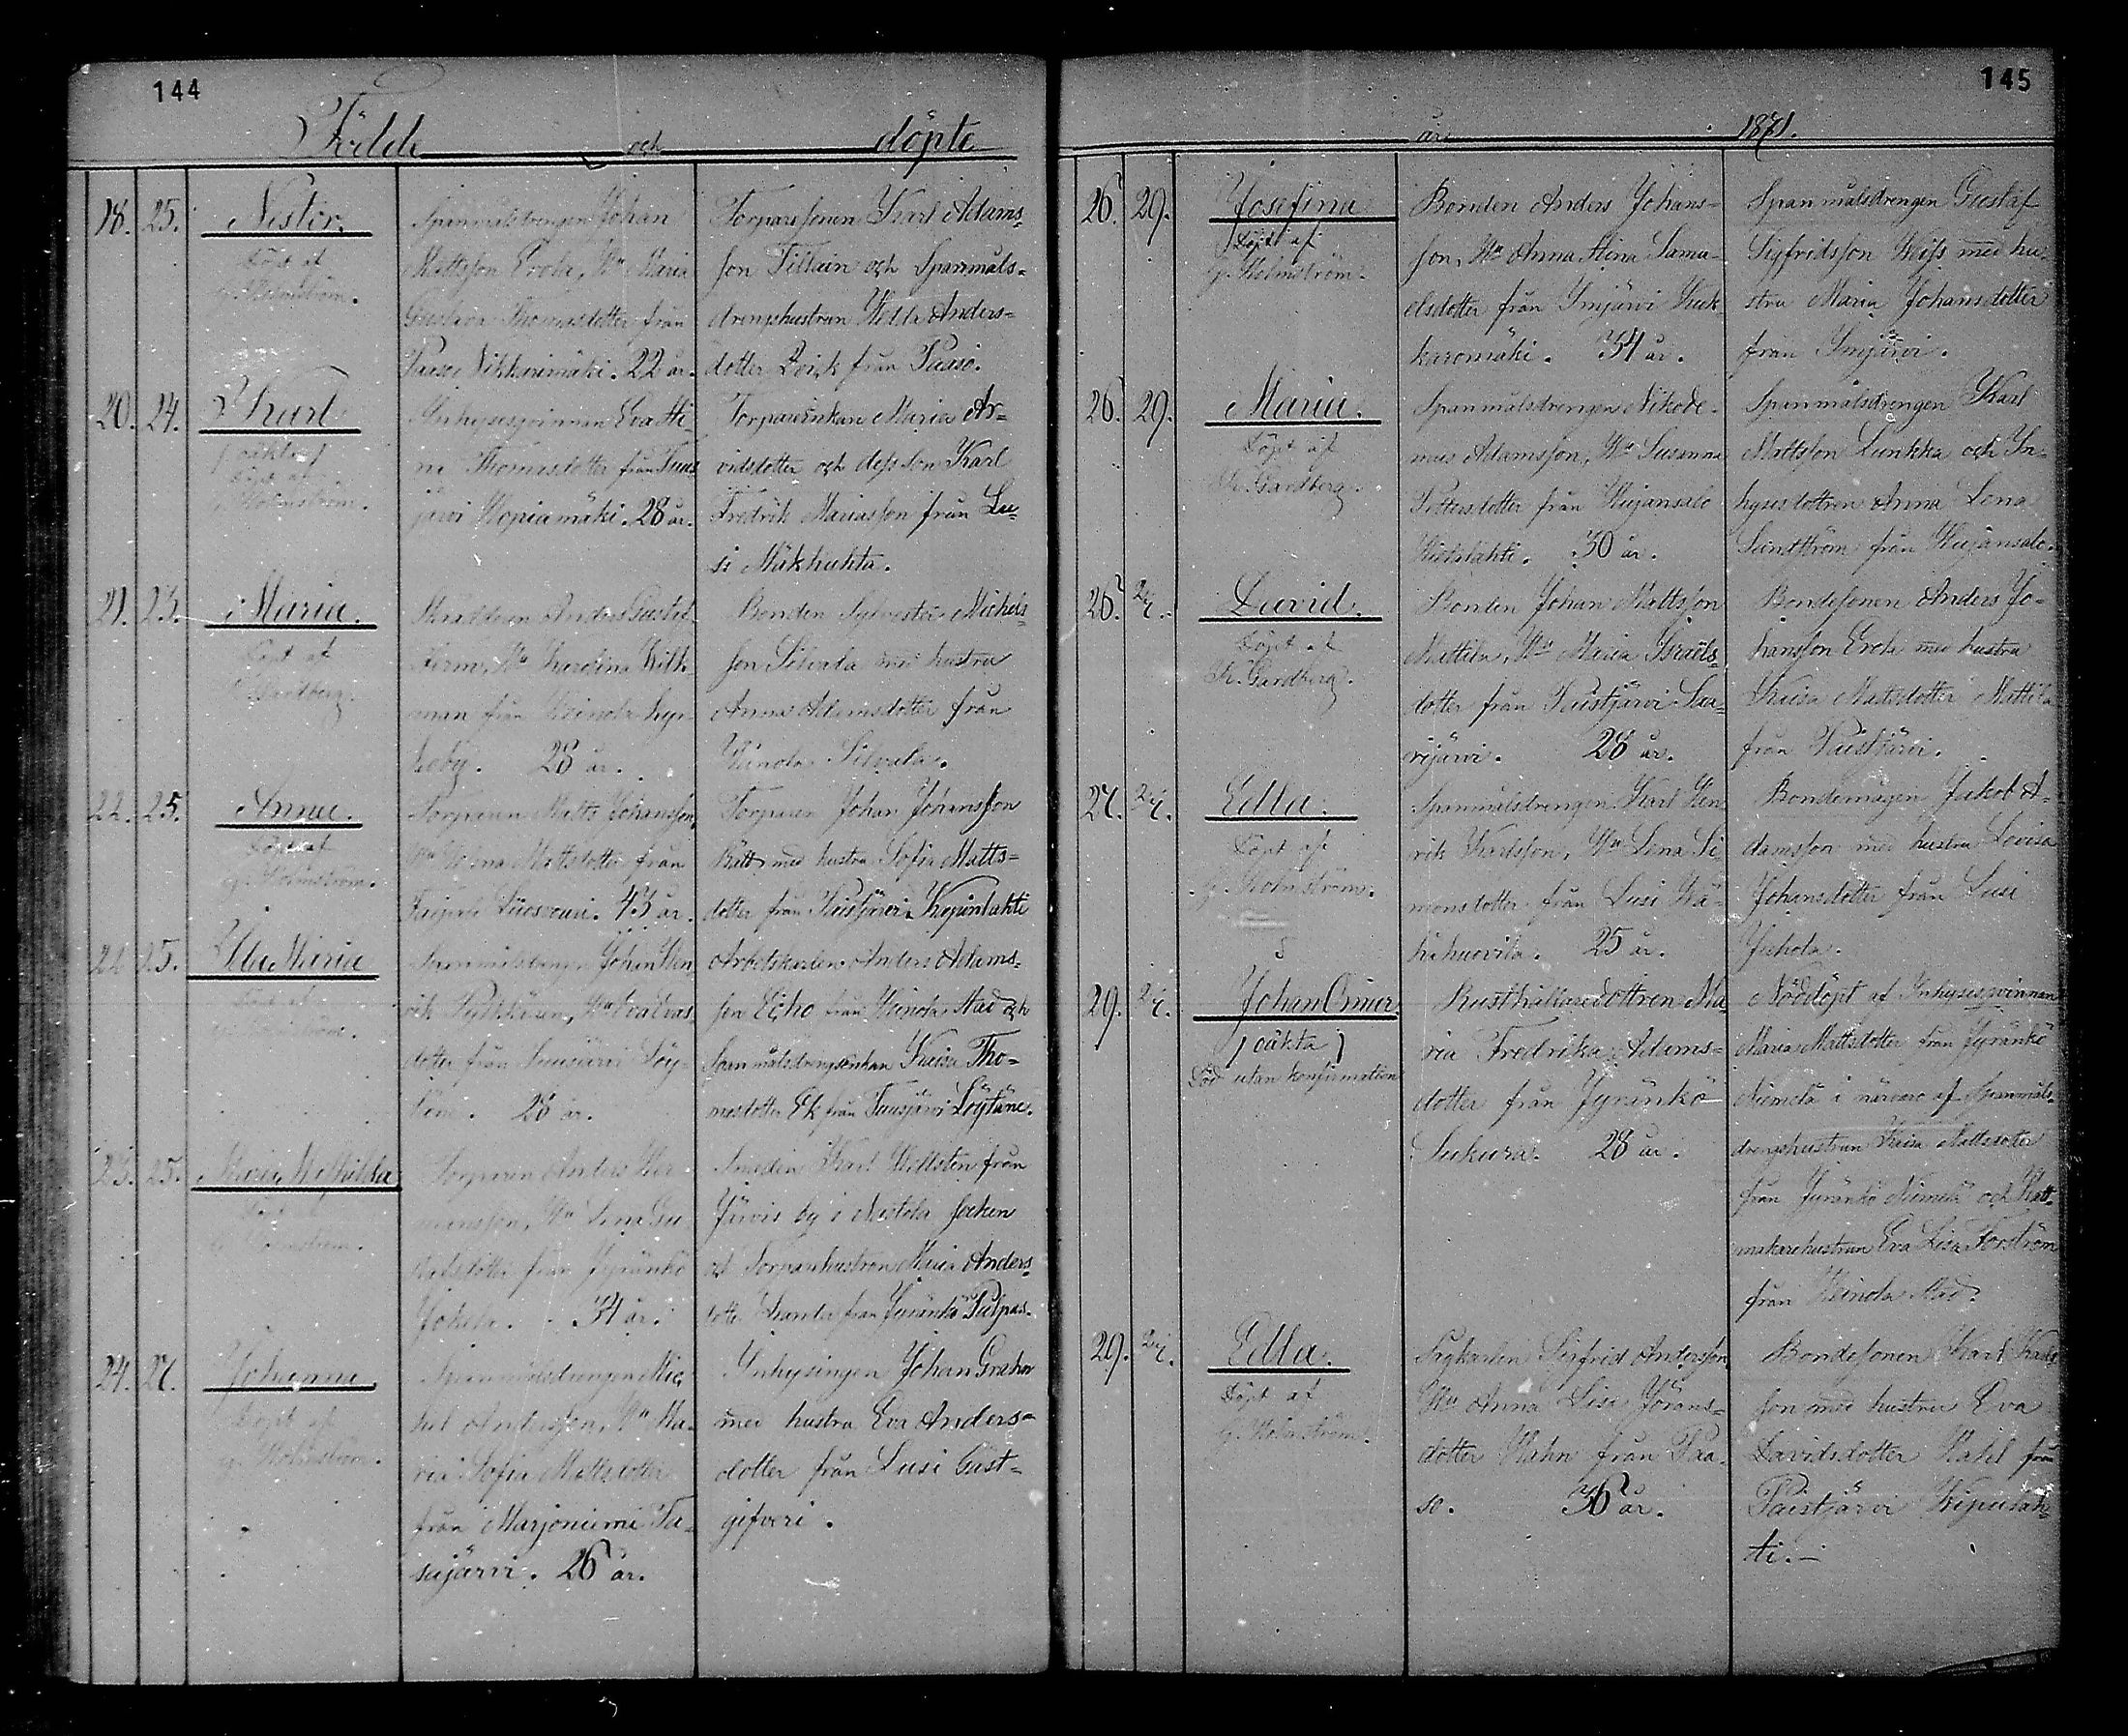 144
Födde och döpte
18. 25. Nestor.
Döpt af
G. Holmström.
Spanmålsdrengen Johan
Mattsson Erola, Hu Maria
Gustava Thomasdotter från
Paaso Nikkarimäki. 22 år.
Torparesonen Karl Adams-
son Tillain och Spanmåls-
drengshustrun Hedda Anders-
dotter Qvick från Paaso.
20. 24. Karl
/oäkta/
Döpt af
G. Holmström.
Inhysesqvinnan Eva Sti-
na Thomasdotter från Tuus-
järvi Hopiamäki. 28 år.
Torpareenkan Maria Ar-
vidsdotter och dess son Karl
Fredrik Mariasson från Lu-
si Mäkhuhta.
21. 23. Maria.
Döpt af
K. Gardberg.
Skräddaren Anders Gustaf
Herm, Hu Karolina Wilk-
man från Heinola kyr-
koby. 28 år.
Bonden Sylvester Michels-
son Silvala med hustru
Anna Adamsdotter från
Heinola Silvala.
22. 25. Anna.
Döpt af
G. Holmström.
Torparen Matts Johansson,
Hu Helena Mattsdotter från
43 år.
Torparen Johan Johansson
Rätt med hustru Sofia Matts-
dotter från Paistjärvi Kepinlahti
22. 25. Ida Maria
Döpt af
G. Holmström.
Spanmålsdrengen Johan Hen-
rik Pulkkinen, Hu Eva Evas-
dotter från Tuusjärvi Löy-
täne. 28 år.
Arbetskarlen Anders Adams-
son Echo från Heinola stad och
Spanmålsdrengsenkan Kaisa Tho-
masdotter Ek från Tuusjärvi Löytäne.
23. 25. Maria Mathilda
Döpt af
G. Holmström.
Torparen Anders Her-
mansson, Hu Lena Ga-
brielsdotter från Jyränkö
Jokela. 34 år.
Smeden Karl Hellsten från
Järvis by i Nastola socken
och Torparehustrun Maria Anders-
dotter från Jyränkö
24. 27. Johanna.
Döpt af
G. Holmström.
Spanmålsdrengen Mic-
kel Andersson, Hu Ma-
ria Sofia Mattsdotter
från Marjoniemi Ta-
sajärvi. 26 år.
Inhysingen Johan Grahn
med hustru Eva Anders-
dotter från Lusi Gäst-
gifveri.
145
år 1871.
26. 29. Josefina
Döpt af
G. Holmström.
Bonden Anders Johans-
son, Hu Anna Stina Samu-
elsdotter från Imjärvi Kuk-
karomäki. 34 år.
Spanmålsdrengen Gustaf
Sigfridsson Weiss med hu-
stru Maria Johansdotter
från Imjärvi.
26. 29. Maria.
Döpt af
K. Gardberg.
Spanmålsdrengen Nikode-
mus Adamsson, Hu Susanna
Pettersdotter från Heijansalo
Hietalahti. 30 år.
Spanmålsdrengen Karl
Mattsson Lunkka och In-
hysesdottren Anna Lena
Lundström från Heijansalo.
26. 2/7. David.
Döpt af
K. Gardberg.
Bonden Johan Mattsson
Mattila, Hu Maria Israels-
dotter från Paistjärvi Saa-
rijärvi. 28 år.
Bondesonen Anders Jo-
hansson Erola med hustru
Kaisa Mattsdotter Mattila
från Paistjärvi.
27. 2/7. Edla.
Döpt af
G. Holmström.
Spanmålsdrengen Karl Hen-
rik Karlsson, Hu Lena Si-
monsdotter från Lusi Wä-
hähuovila. 25 år.
Bondemågen Jakob A-
damsson med hustru Lovisa
Johansdotter från Lusi
Juhola.
29. 2/7. Johan Omar
/oäkta/
Död utan konfirmation
Rusthållaredottren Ma-
ria Fredrika Adams-
dotter från Jyränkö
Sukura. 28 år.
Nöddöpt af Inhysesqvinnan
Maria Mattsdotter från Jyränkö
Niemelä i närvaro af Spanmåls-
drengshustrun Kaisa Mattsdotter
från Jyränkö Niemelä och Hatt-
makarehustrun Eva Lisa Forström
från Heinola stad.
29. 2/7. Edla.
Döpt af
G. Holmström.
Sågkarlen Sigfrid Andersson,
Hu Anna Lisa Jörans-
dotter Hahn från Paa-
so. 36 år.
Bondesonen Karl Karls-
son med hustru Eva
Davidsdotter Hahl från
Paistjärvi Kepinlah-
ti.-